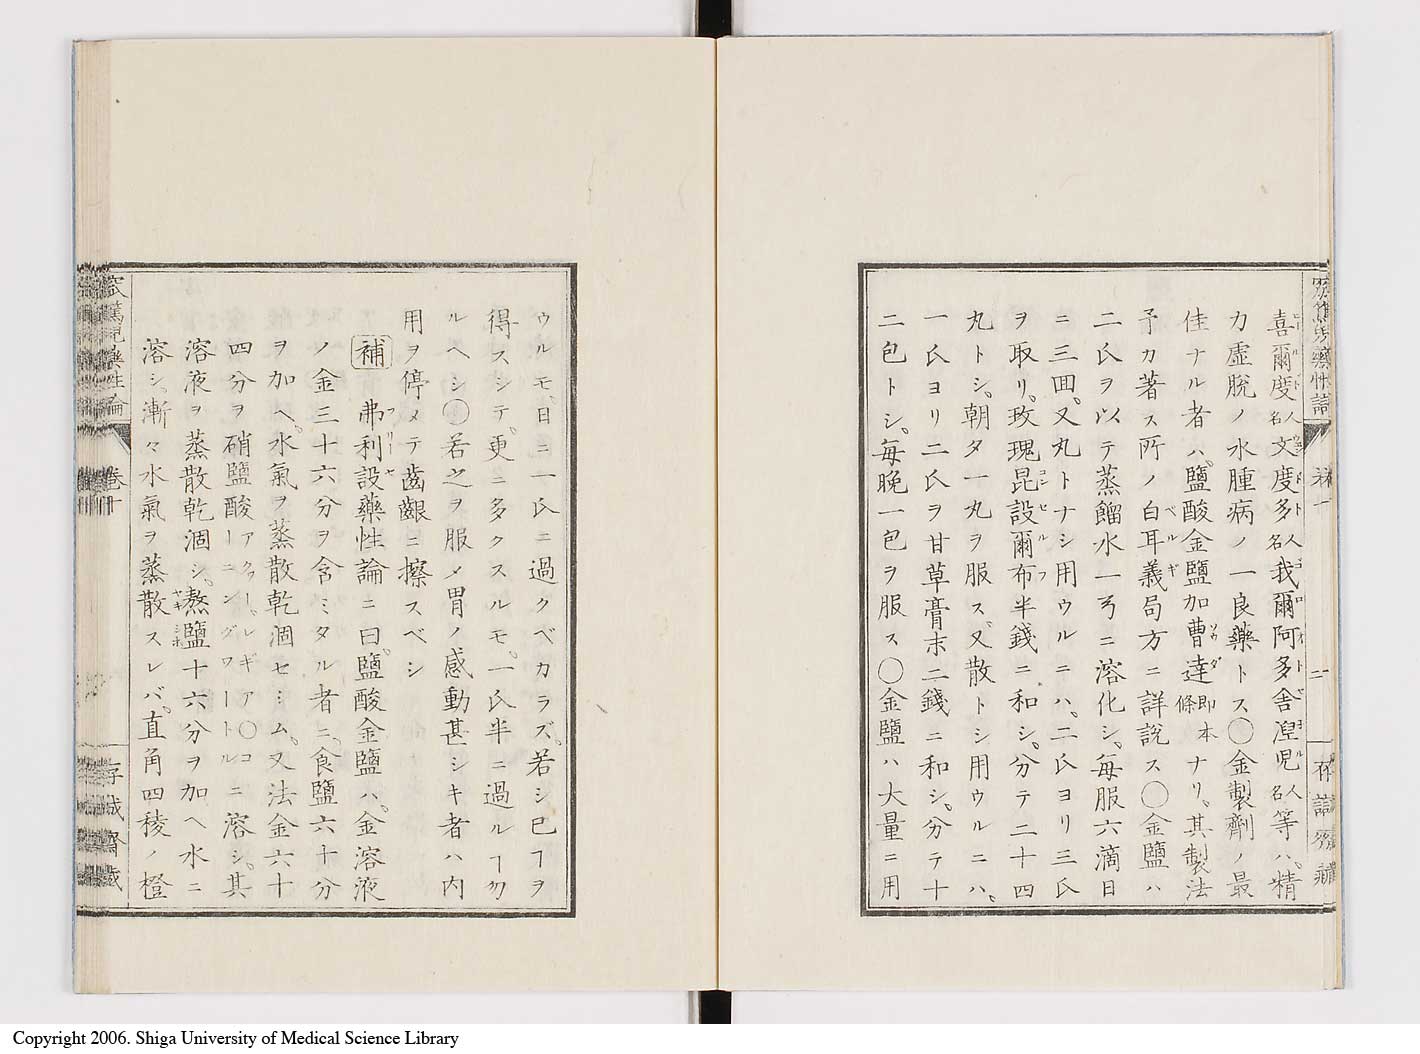 喜爾度人名文度多人名我爾阿多舎湼児人名等ハ、精
力虚脱ノ水腫病ノ一良藥トス〇金製劑ノ最
佳ナル者ハ、鹽酸金鹽加曹達即本條ナリ、其製法
予カ著ス所ノ白耳義局方ニ詳説ス〇金鹽ハ
二氏ヲ以テ蒸餾水一弓ニ溶化シ、毎服六滴日
ニ三回、又丸トナシ用ウルニハ、二氏ヨリ三氏
ヲ取リ、玫瑰昆設爾布半錢ニ和シ、分テ二十四
丸トシ、朝夕一丸ヲ服ス、又散トシ用ウルニハ、
一氏ヨリ二氏ヲ甘草膏末二錢ニ和シ、分テ十
二包トシ、毎晩一包ヲ服ス〇金鹽ハ大量ニ用
ウルモ、日ニ一氏ニ過クベカラズ、若シ已ヿヲ
得スシテ、更ニ多クスルモ、一氏半ニ過ルヿ勿
ルヘシ〇若之ヲ服メ胃ノ感動甚シキ者ハ内
用ヲ停メテ齒齦ニ擦スベシ
補 弗利設藥性論ニ曰鹽酸金鹽ハ、金溶液
ノ金三十六分ヲ含ミタル者ニ、食鹽六十分
ヲ加ヘ、水氣ヲ蒸散乾涸セシム、又法金六十
四分ヲ硝鹽酸アクワー、レギア〇コーニングワートルニ溶シ、其
溶液ヲ蒸散乾涸シ、熬鹽十六分ヲ加ヘ水ニ
溶シ、漸々水氣ヲ蒸散スレバ、直角四稜ノ橙
窊篤児藥性論
卷十
存誠齋蔵
Copyright 2006. Shiga University of Medical Science Library